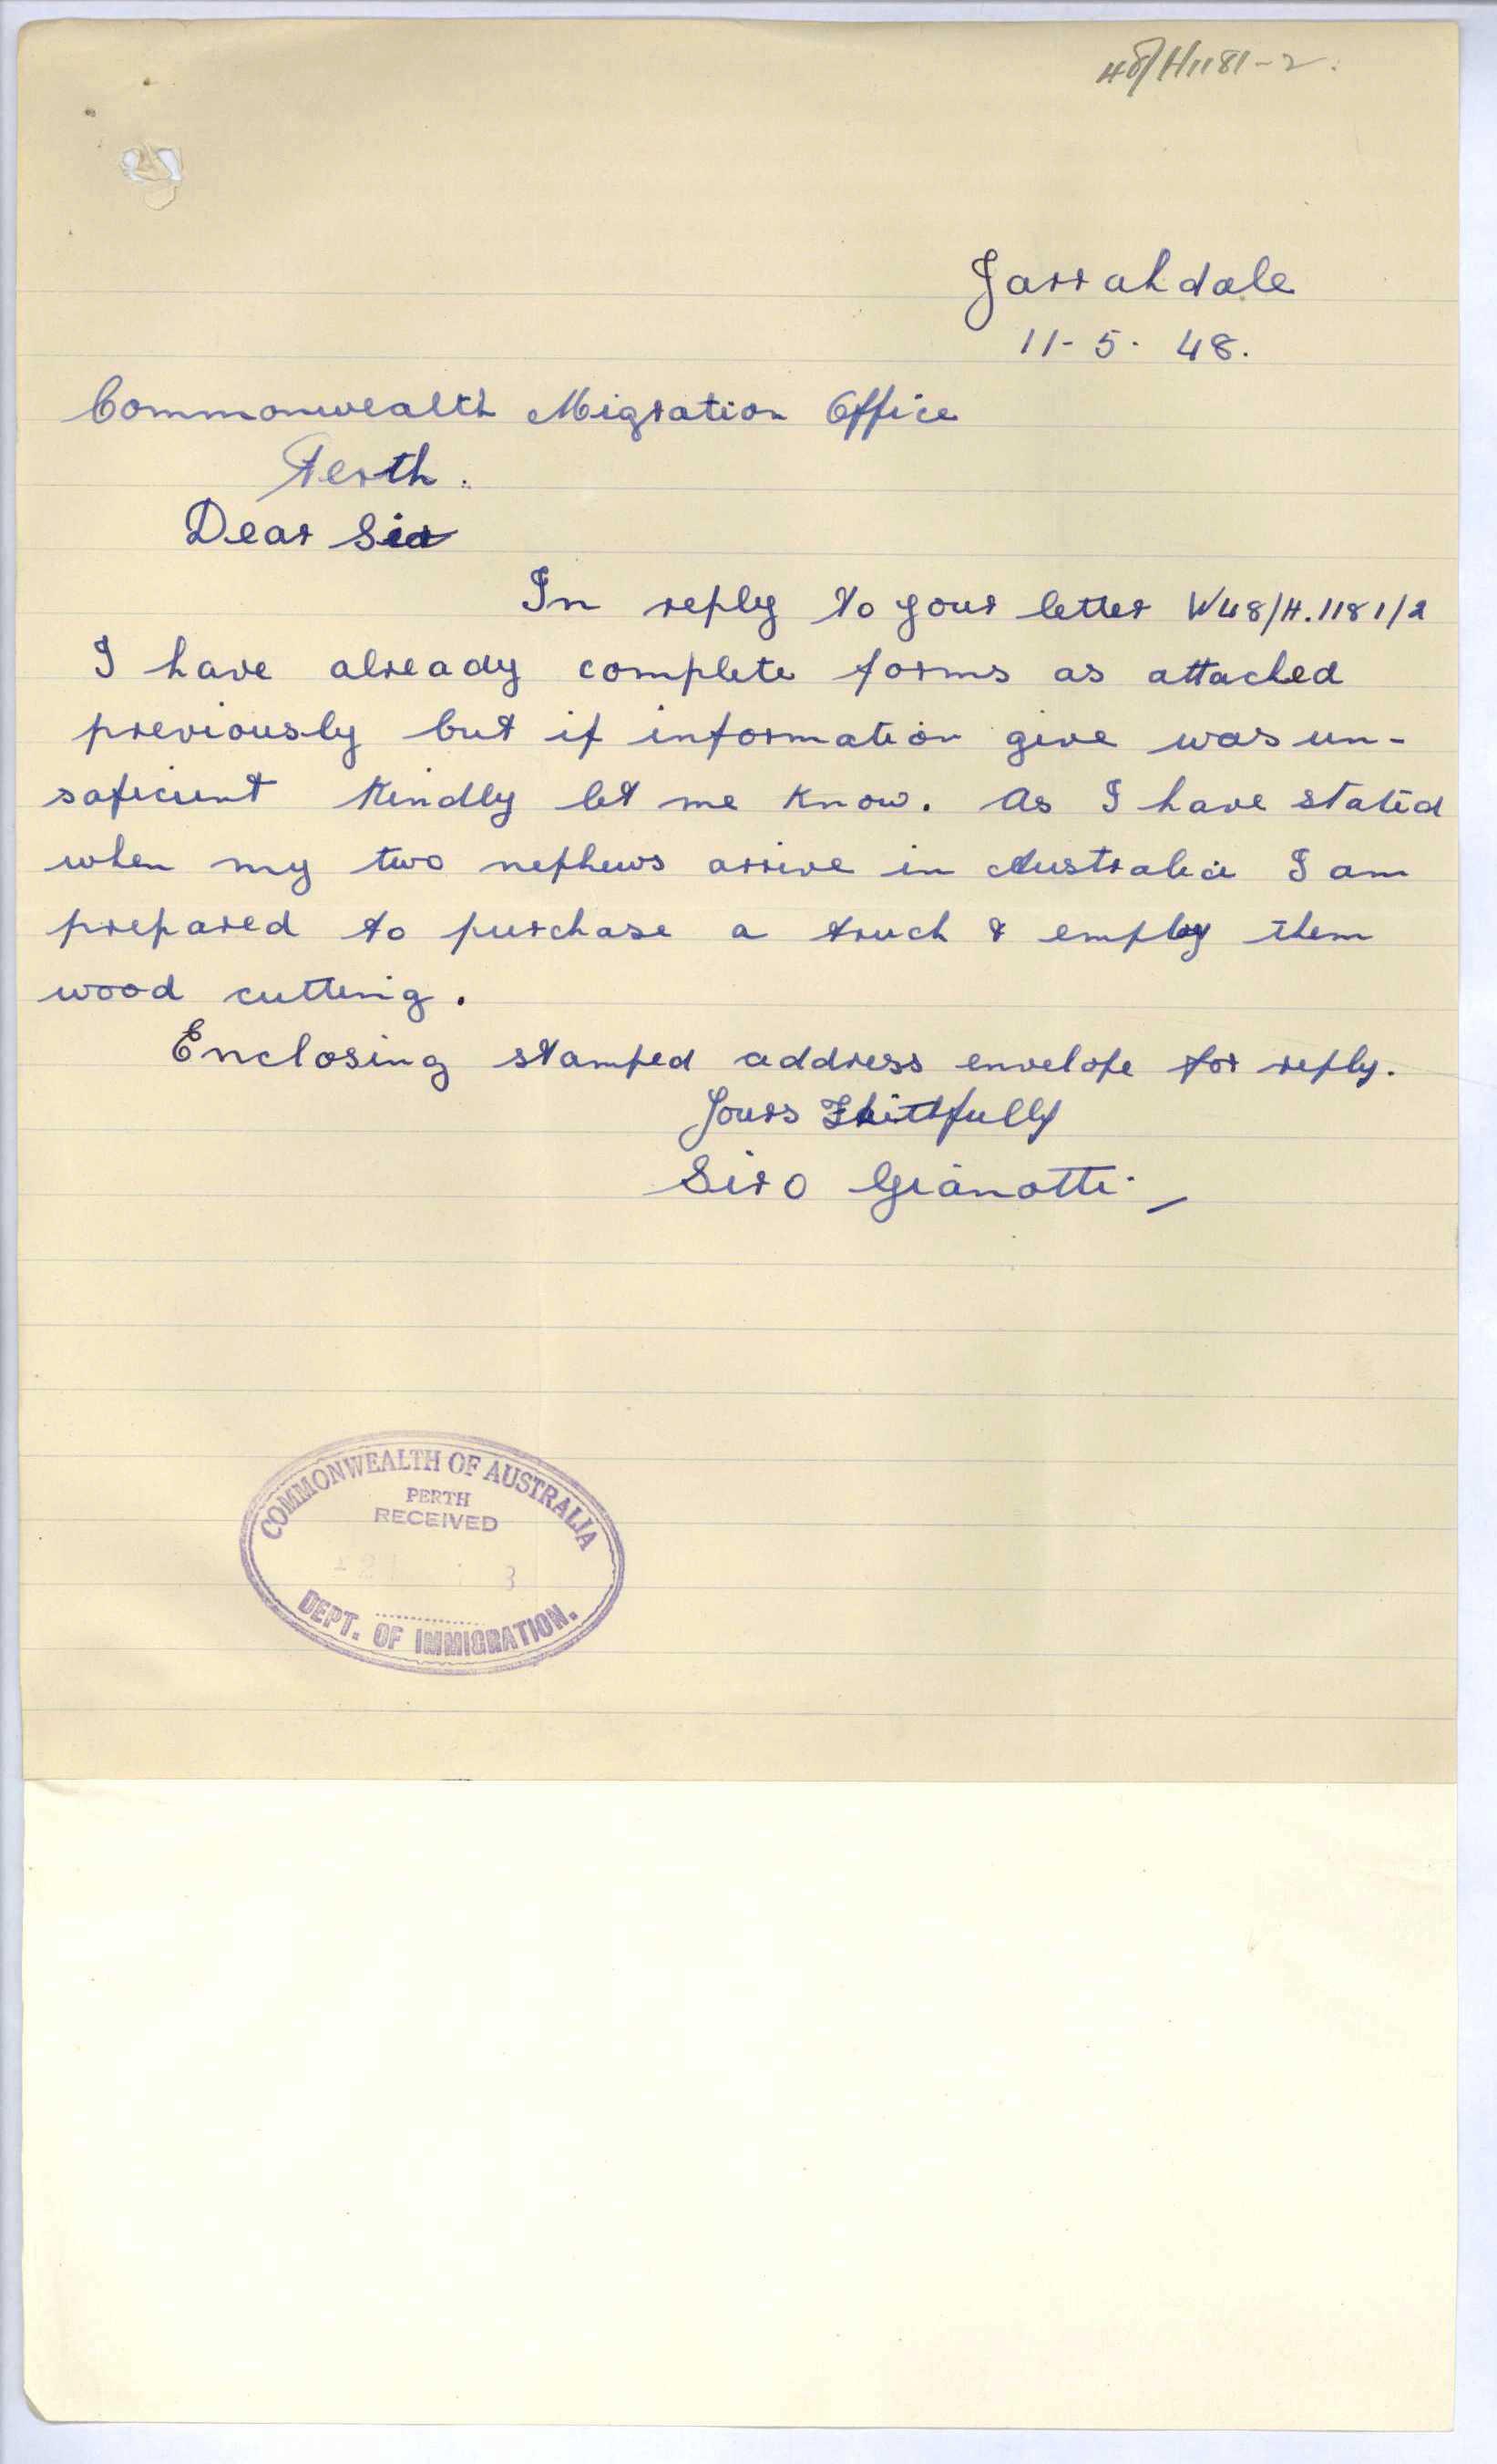 48/H1181-2.
Jarrahdale
11-5. 48.
Commonwealth Migration Office
Perth.
Dear Sir
In reply to your letter W48/H.1181/2
I have already complete forms as attached
previously but if information give was un-
saficient kindly let me know. As I have stated
when my two nephews arrive in Australia I am
prepared to purchase a truch & employ them
wood cutting.
Enclosing stamped address envelope for reply.
Yours Faithfully
Siro Gianotti
COMMONWEALTH OF AUSTRALIA
PERTH
RECEIVED
DEPT. OF IMMIGRATION.